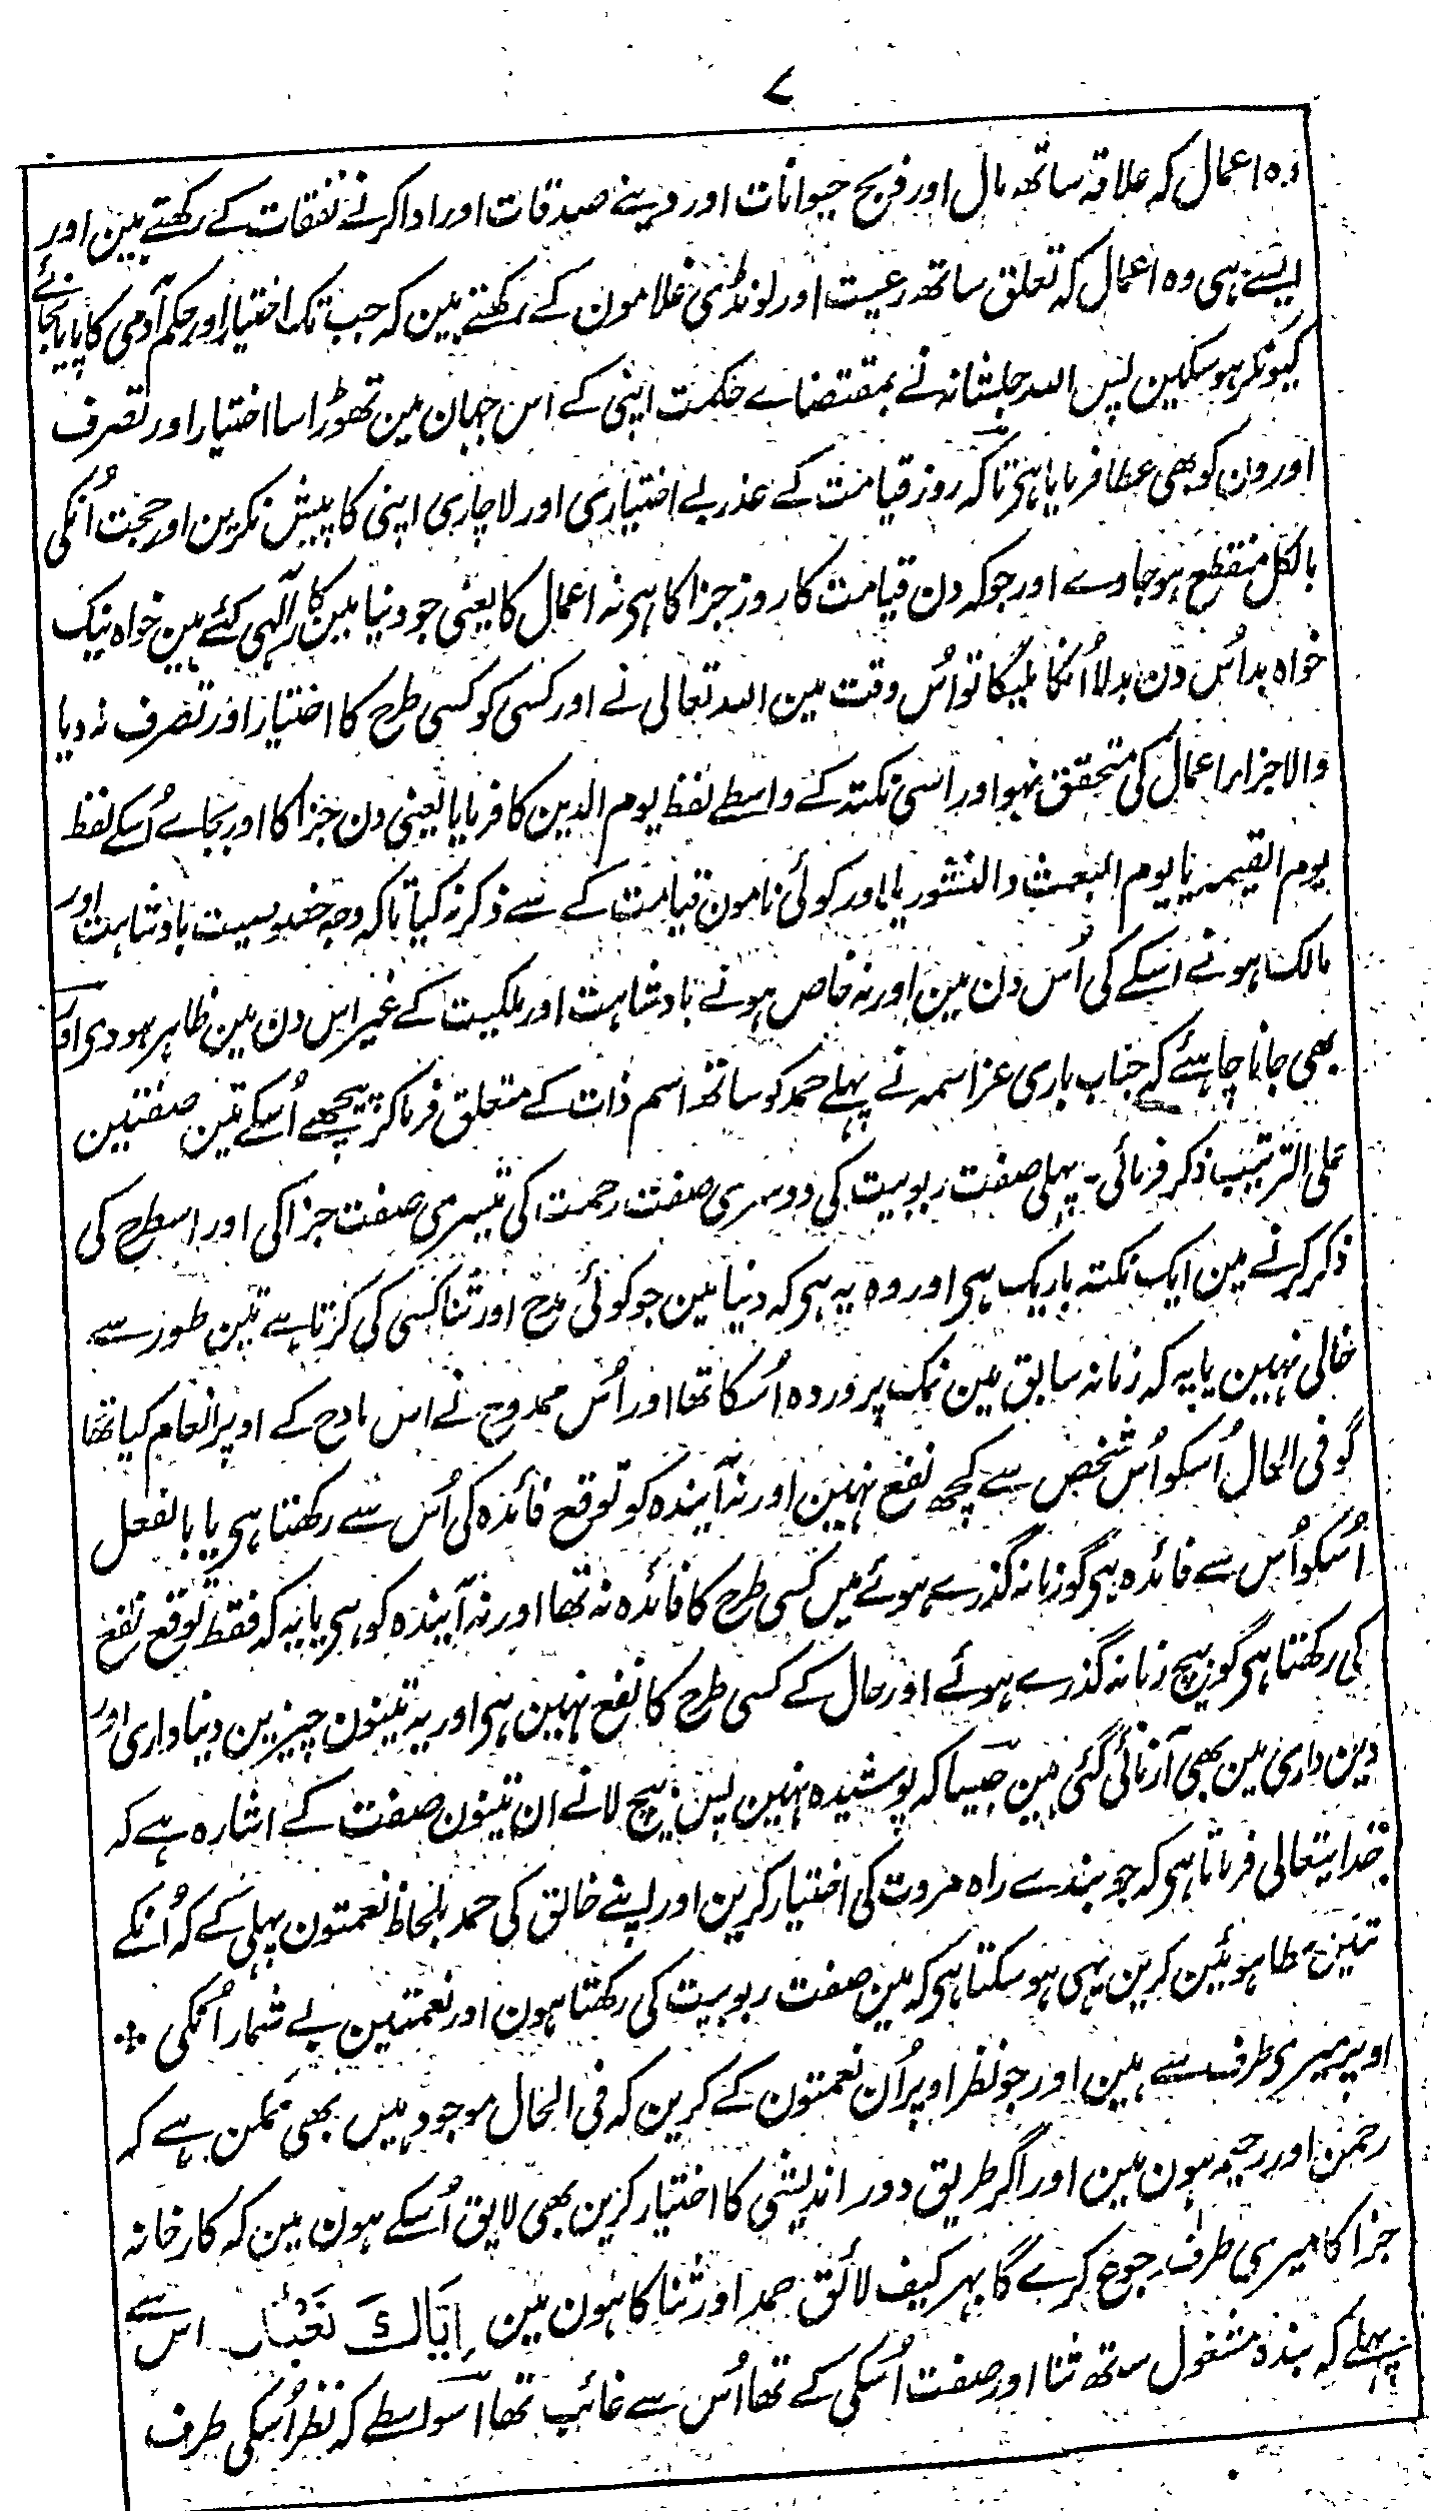 ۷
وہ اعمال کہ علاقہ ساتھ مال اور ذبح حیوانات اور دینے صدقات اور ادا کرنے نفقات کے رکھتے ہین اور
ایسے ہی وہ اعمال کہ تعلق ساتھ رعیت اور لونڈی غلامون کے رکھتے ہین کہ جب تک اختیار اور حکم آدمی کا پایا نجائے
کیونکر ہو سکین پس اللہ جلشانہ نے بمقتضاے حکمت اپنی کے اس جہان مین تھوڑا سا اختیار اور تصرف
اورون کو بھی عطا فرمایا ہی تاکہ روز قیامت کے عذر بے اختیاری اور لاچاری اپنی کا پیش نکرین اور حجت اُنکی
بالکل منقطع ہو جاوے اور جو کہ دن قیامت کا روز جزا کا ہی نہ اعمال کا یعنی جو دنیا مین کار آلہی کئے ہین خواہ نیک
خواہ بد اُس دن بدلا اُنکا ملیگا تو اُس وقت مین اللہ تعالی نے اور کسی کو کسی طرح کا اختیار اور تصرف نہ دیا
والا جزاء اعمال کی متحقق نہو اور اسی نکتہ کے واسطے لفظ یوم الدین کا فرمایا یعنی دن جزا کا اور بجاے اُسکے لفظ
یوم القیمۃ یا یوم البعث والنشور یا اور کوئی نامون قیامت کے سے ذکر نہ کیا تاکہ وجہ خصوصیت بادشاہت اور
مالک ہونے اسکے کی اُس دن مین اور نہ خاص ہونے بادشاہت اور ملکیت کے غیر اس دن مین ظاہر ہووی اور
بھی جانا چاہئے کہ جناب باری عز اسمہ نے پہلے حمد کو ساتھ اسم ذات کے متعلق فرما کر پیچھے اُسکے تین صفتین
علی الترتیب ذکر فرمائی۔ پہلی صفت ربوبیت کی دوسری صفت رحمت کی تیسری صفت جزا کی اور اسطرح کی
ذکر کرنے مین ایک نکتہ باریک ہی اور وہ یہ ہی کہ دنیا مین جو کوئی مدح اور ثنا کسی کی کرتا ہے تین طور سے
خالی نہین یا یہ کہ زمانہ سابق مین نمک پروردہ اُسکا تھا اور اُس ممدوح نے اس مادح کے اوپر انعام کیا تھا
گو فی الحال اُسکو اُس شخص سے کچھ نفع نہین اور نہ آیندہ کو توقع فائدہ کی اُس سے رکھتا ہی یا بالفعل
اُسکو اُس سے فائدہ ہی گو زمانہ گذرے ہوئے میں کسی طرح کا فائدہ نہ تھا اور نہ آیندہ کو ہی یا یہ کہ فقط توقع نفع
کی رکھتا ہی گو بیچ زمانہ گذرے ہوئے اور حال کے کسی طرح کا نفع نہین ہی اور یہ تینون چیزین دنیاداری اور
دین داری مین بھی آزمائی گئی ہین جیسا کہ پوشیدہ نہین پس بیچ لانے ان تینون صفت کے اشارہ ہے کہ
خدایتعالی فرماتا ہی کہ جو بندے راہ مروت کی اختیار کرین اور اپنے خالق کی حمد بلحاظ نعمتون پہلی کے کہ اُنکے
تئین عطا ہوئین کرین یہی ہو سکتا ہی کہ مین صفت ربوبیت کی رکھتا ہون اور نعمتین بے شمار اُنکی
اوپر میری طرف سے ہین اور جو نظر اوپر اُن نعمتون کے کرین کہ فی الحال موجود ہیں بھی ممکن ہے کہ
رحمن اور رحیم ہون مین اور اگر طریق دور اندیشی کا اختیار کرین بھی لایق اُسکے ہون مین کہ کارخانہ
جزا کا میری طرف رجوع کرے گا بہر کیف لائق حمد اور ثنا کا ہون مین اِیَّاكَ نَعْبُدُ اس سے
پہلے کہ بندہ مشغول ساتھ ثنا اور صفت اُسکی کے تھا اُس سے غائب تھا اسواسطے کہ نظر اُسکی طرف